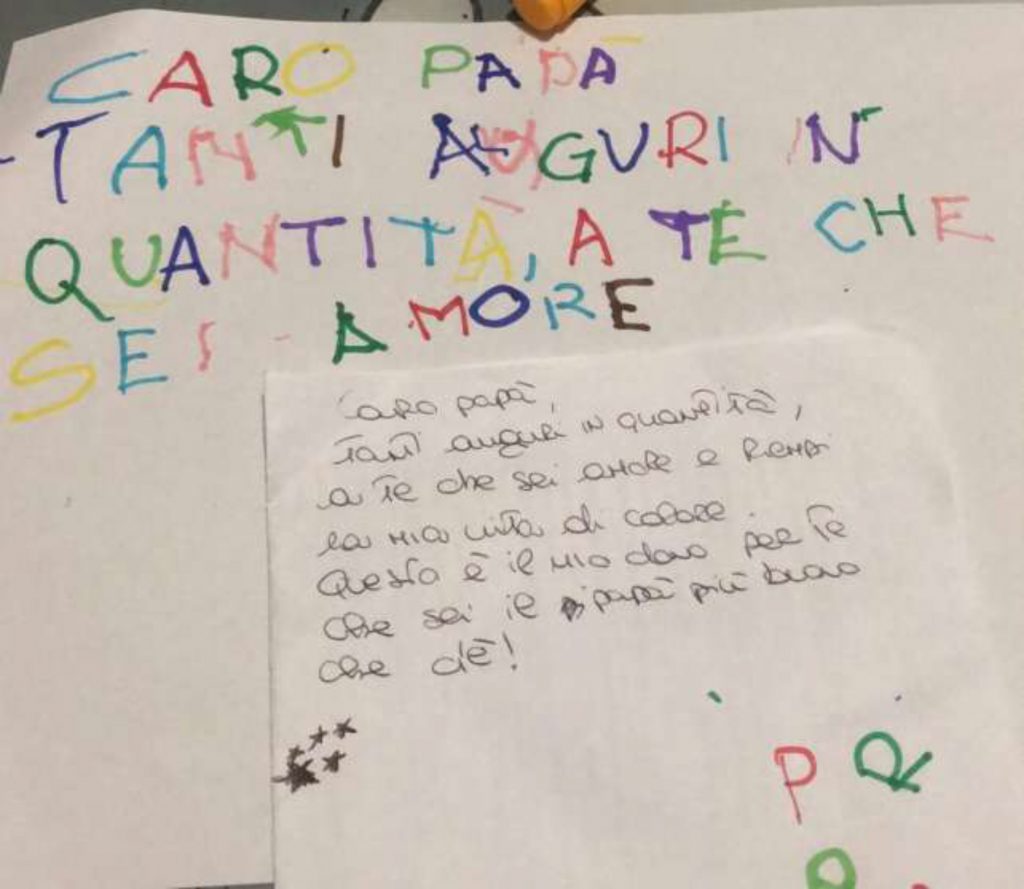 CARO PAPÀ
TANTI AUGURI IN
QUANTITÀ, A TE CHE
SEI AMORE
Caro papà,
Tanti auguri in quantità,
a te che sei amore e riempi
la mia vita di colore.
Questo è il mio dono per te
che sei il papà più buono
che c'è!
P Q